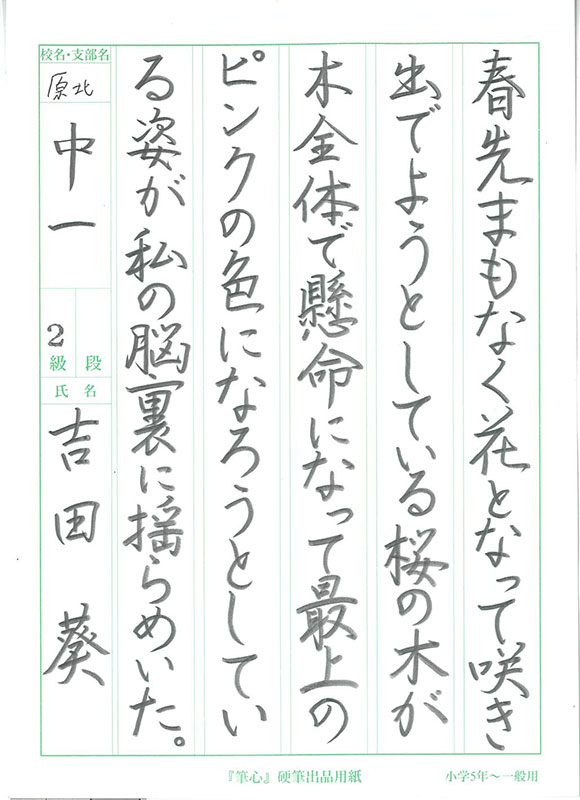 春先まもなく花となって咲き
出でようとしている桜の木が
木全体で懸命になって最上の
ピンクの色になろうとしてい
る姿が私の脳裏に揺らめいた。
校名・支部名
原北
中一
段
2級
氏名
吉田 葵
『筆心』硬筆出品用紙
小学5年〜一般用